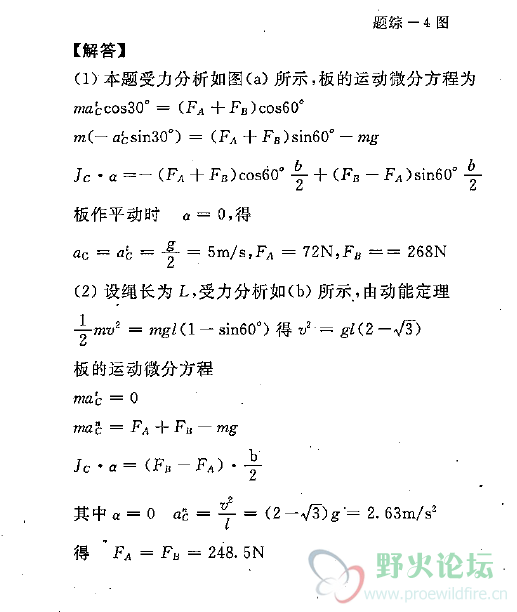 题综-4图
【解答】
(1) 本题受力分析如图(a)所示,板的运动微分方程为
ma_C^t cos30° = (F_A + F_B)cos60°
m(- a_C^t sin30°) = (F_A + F_B)sin60° - mg
J_C · α = - (F_A + F_B)cos60° b/2 + (F_B - F_A)sin60° b/2
板作平动时 α = 0,得
a_C = a_C^t = g/2 = 5m/s, F_A = 72N, F_B == 268N
(2) 设绳长为 L,受力分析如(b)所示,由动能定理
1/2 mv² = mgl(1 - sin60°) 得 v² = gl(2 - √3)
板的运动微分方程
ma_C^t = 0
ma_C^n = F_A + F_B - mg
J_C · α = (F_B - F_A) · b/2
其中 α = 0 a_C^n = v²/l = (2 - √3)g = 2.63m/s²
得 F_A = F_B = 248.5N
野火论坛
www.proewildfire.cn